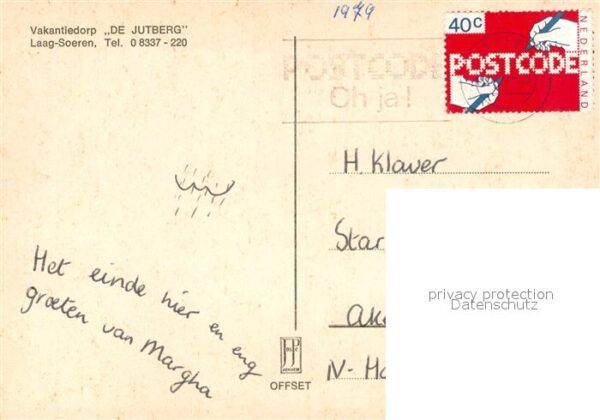 Vakantiedorp „DE JUTBERG"
Laag-Soeren, Tel. 0 8337 - 220
1979
40c
POSTCODE
NEDERLAND
POSTCODE
Oh ja!
H. Klaver
Star
Het einde hier en eng
groeten van Margha
N-Ho
privacy protection
Datenschutz
OFFSET